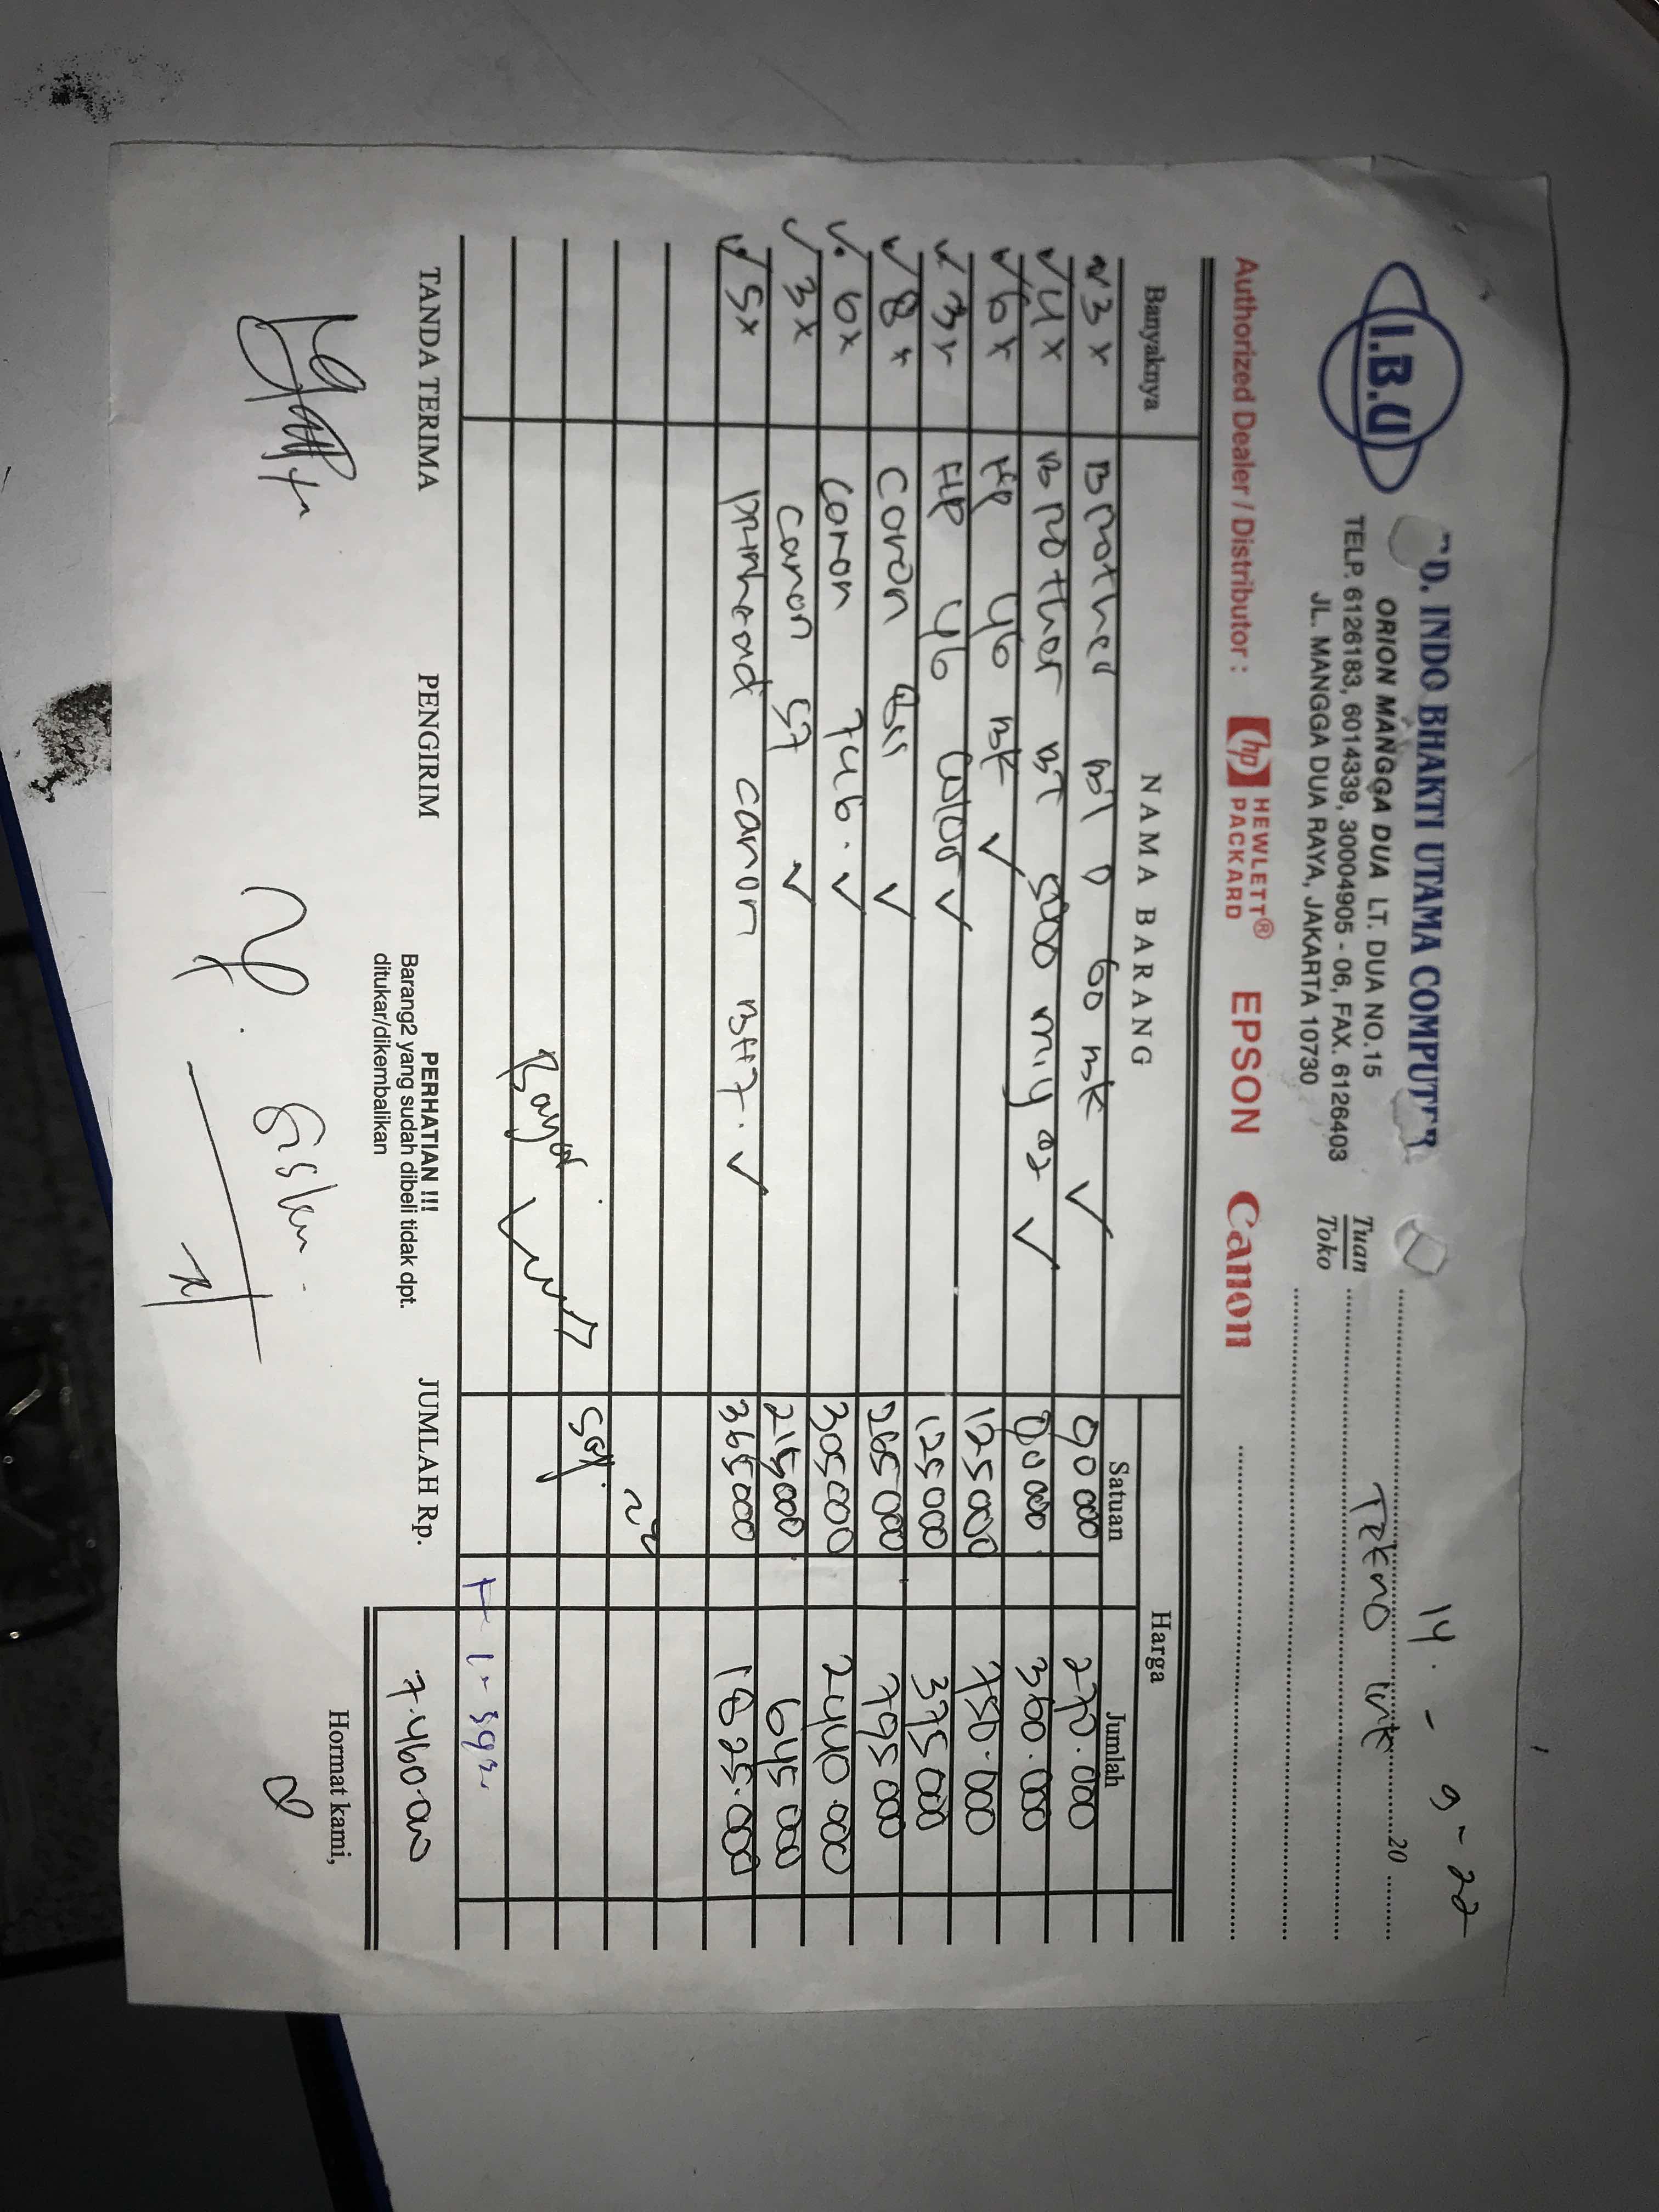 14 - 9 - 22
I.B.U
D. INDO BHAKTI UTAMA COMPUTER
ORION MANGGA DUA LT. DUA NO.15
TELP. 6126183, 6014339, 30004905 - 06, FAX. 6126403
JL. MANGGA DUA RAYA, JAKARTA 10730
20
Tuan
Toko
Tekno ink
Authorized Dealer / Distributor : hp HEWLETT® PACKARD EPSON Canon
Banyaknya NAMA BARANG Harga
Satuan Jumlah
3 x Brother BT D 60 BK 90 000 270.000
4 x Brother BT 5000 90 000 360.000
6 x Hp 46 BK 125 000 750.000
3 x Hp 46 Color 125 000 375 000
8 x Canon 265 000 795 000
6 x Canon 746. 305 000 2440 000
3 x Canon 57 215 000 645 000
5 x Printhead Canon BH7. 365 000 1825.000
Bayar
TANDA TERIMA PENGIRIM JUMLAH Rp. 7.460.000
PERHATIAN !!!
Barang2 yang sudah dibeli tidak dpt.
ditukar/dikembalikan
Hormat kami,